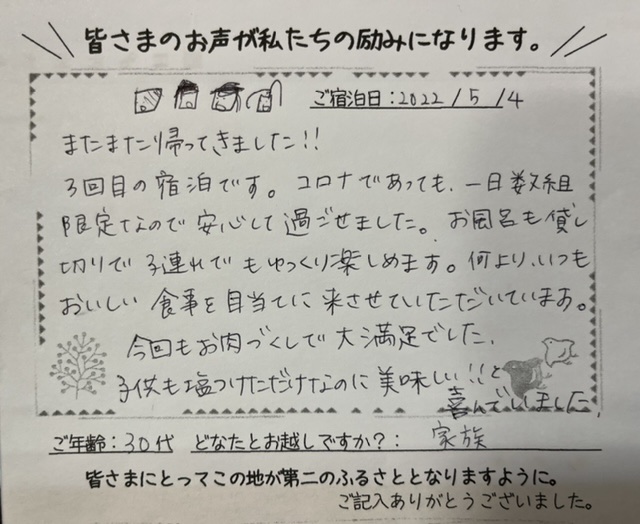 皆さまのお声が私たちの励みになります。
ご宿泊日:2022/5/4
またまたり帰ってきました!!
3回目の宿泊です。コロナであっても、一日数組
限定なので安心して過ごせました。お風呂も貸し
切りで子連れでもゆっくり楽しめます。何より、いつも
おいしい食事を目当てに来させていただいています。
今回もお肉づくしで大満足でした、
子供も塩つけただけなのに美味しい!!と
喜んでいました
ご年齢:30代 どなたとお越しですか?: 家族
皆さまにとってこの地が第二のふるさととなりますように。
ご記入ありがとうございました。